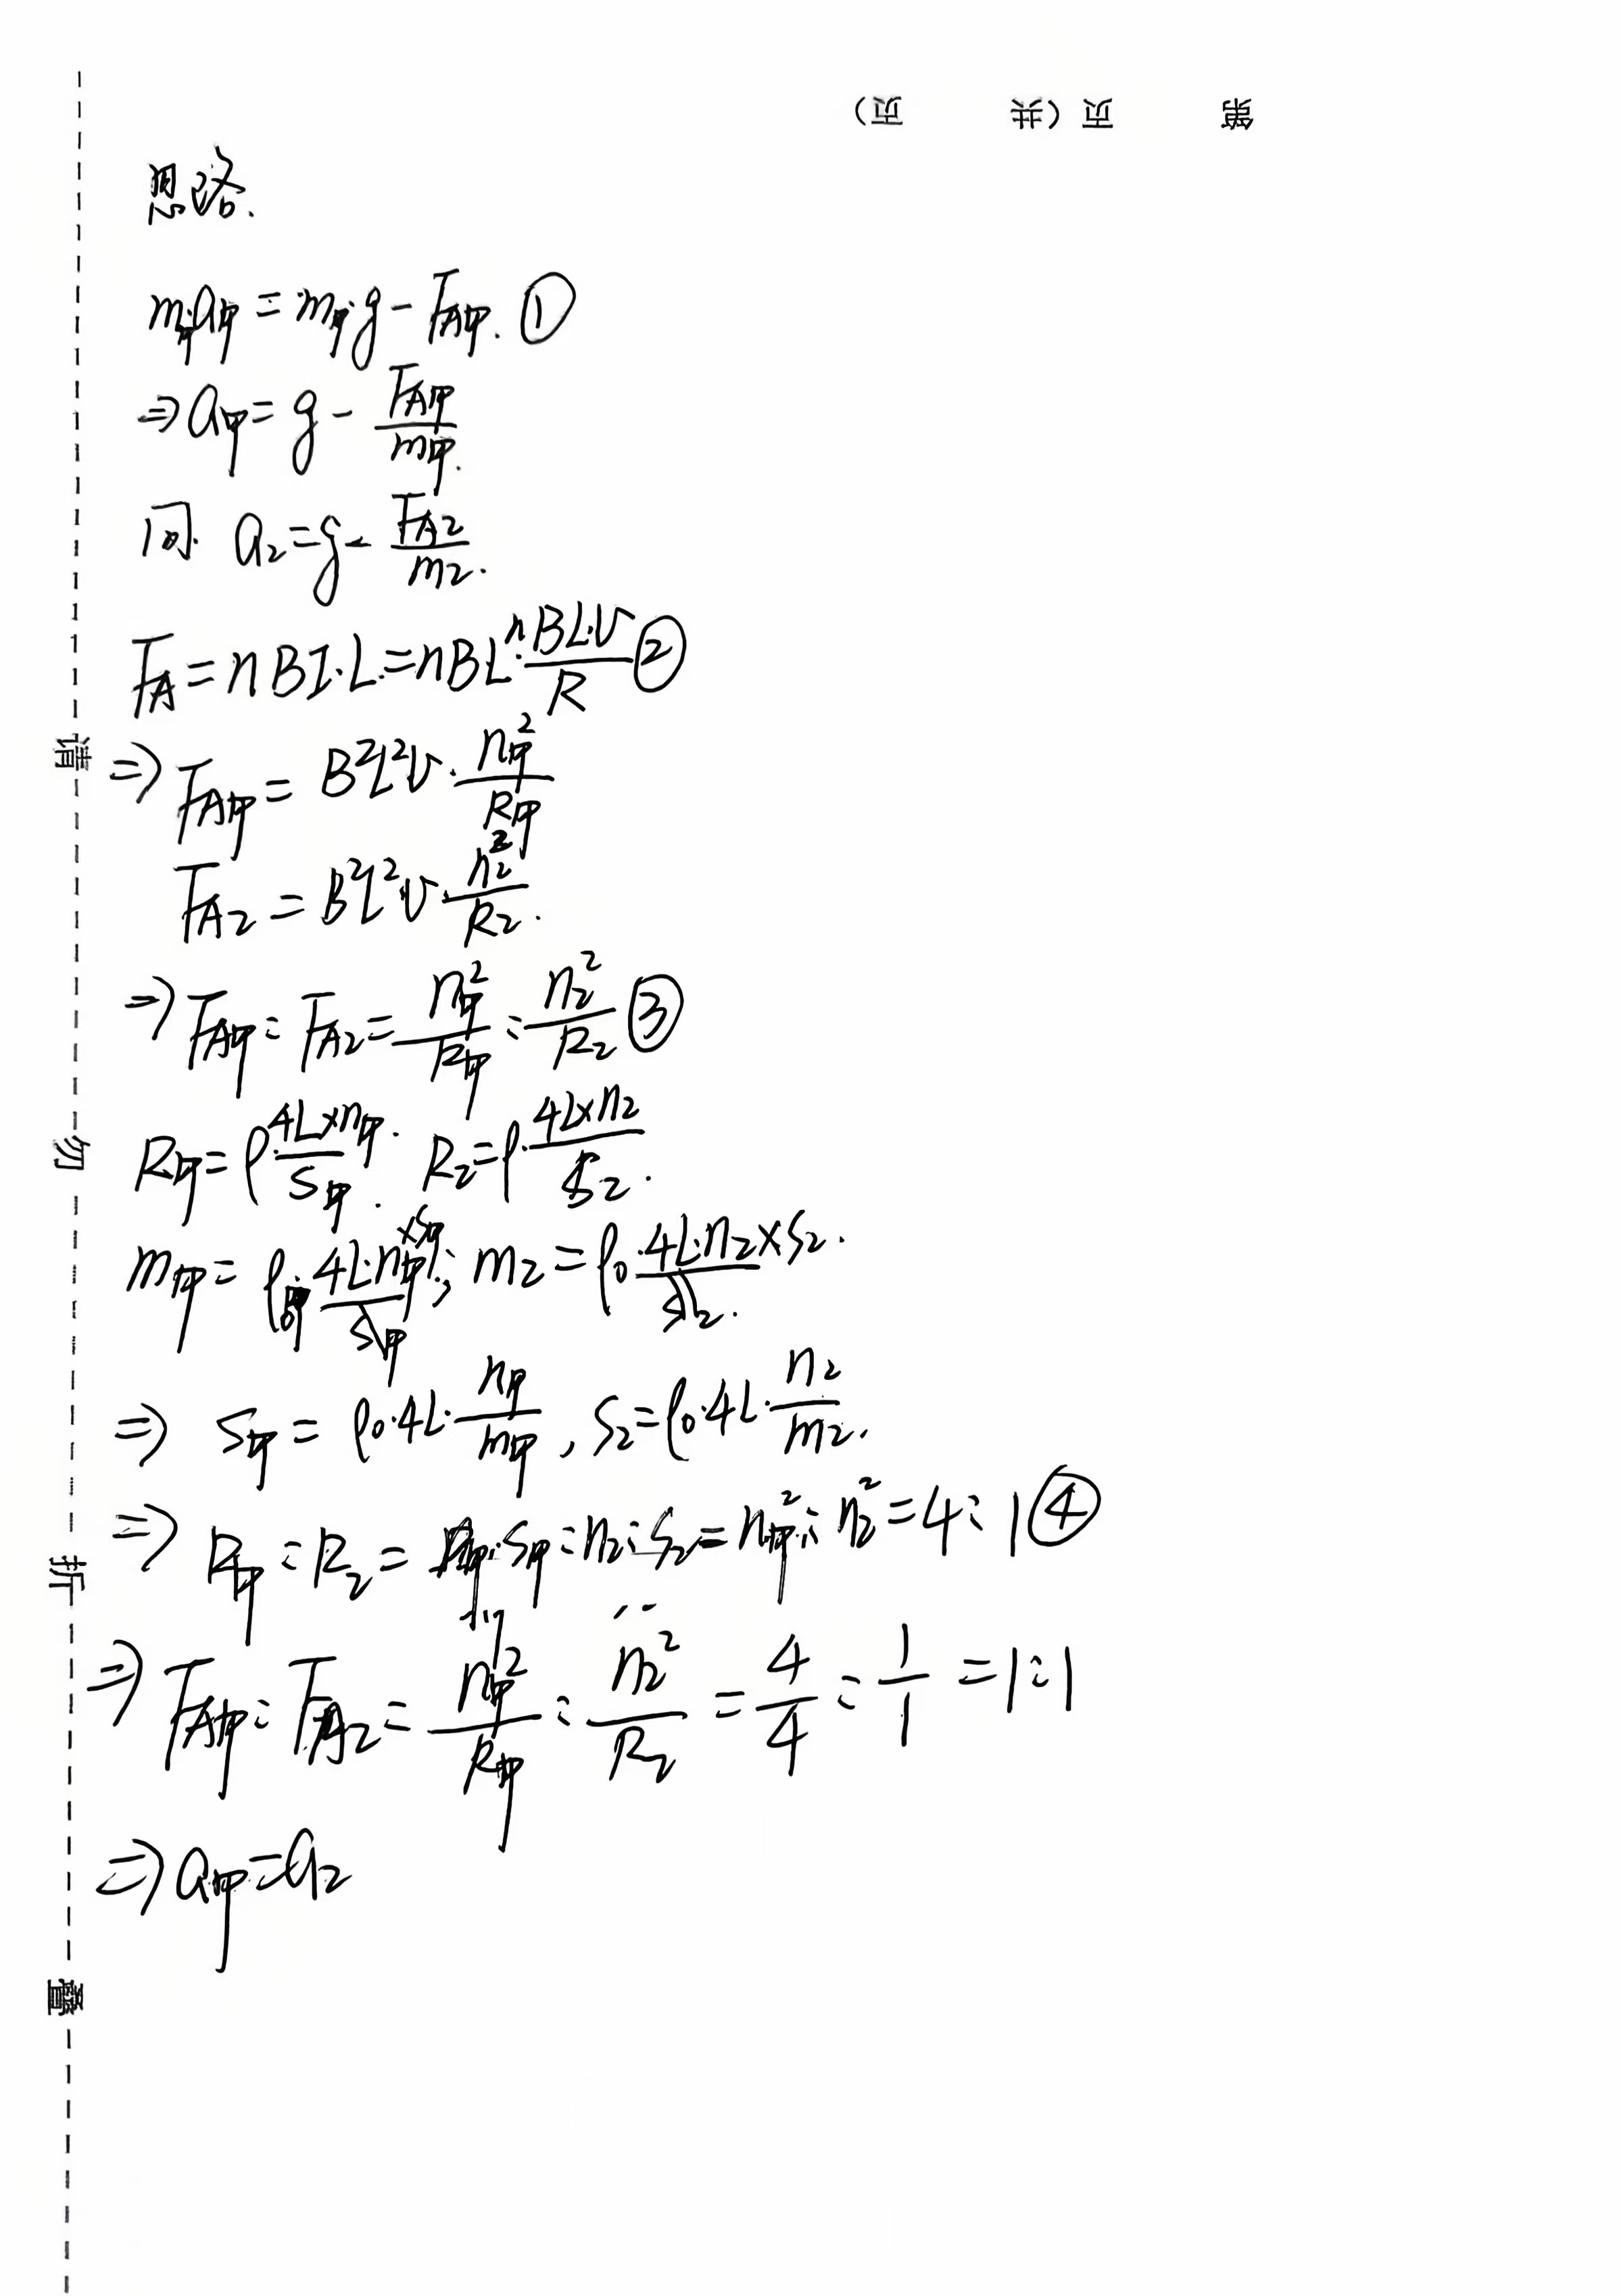 第 页（共 页）
思路.
m甲a甲 = m甲g - FA甲. ①
⇒ a甲 = g - FA甲/m甲.
同. a2 = g - FA2/m2.
FA = nBI·L. = nBL·nBL·v/R ②
⇒ FA甲 = B²L²v·n甲²/R甲
FA2 = B²L²v·n2²/R2.
⇒ FA甲 : FA2 = n甲²/R甲 : n2²/R2 ③
R甲 = ρ·4L×n甲/S甲. R2 = ρ·4L×n2/S2.
m甲 = ρ0·4L·n甲×S甲; m2 = ρ0·4L·n2×S2.
⇒ S甲 = ρ0·4L·n甲/m甲, S2 = ρ0·4L·n2/m2.
⇒ R甲 : R2 = n甲:S甲 : n2:S2 = n甲² : n2² = 4:1 ④
⇒ FA甲 : FA2 = n甲²/R甲 : n2²/R2 = 4/4 : 1/1 = 1:1
⇒ a甲 = a2
请 勿 折 叠